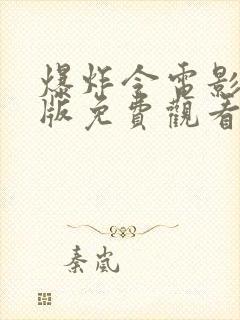 爆炸令電影
版免費觀看
秦嵐